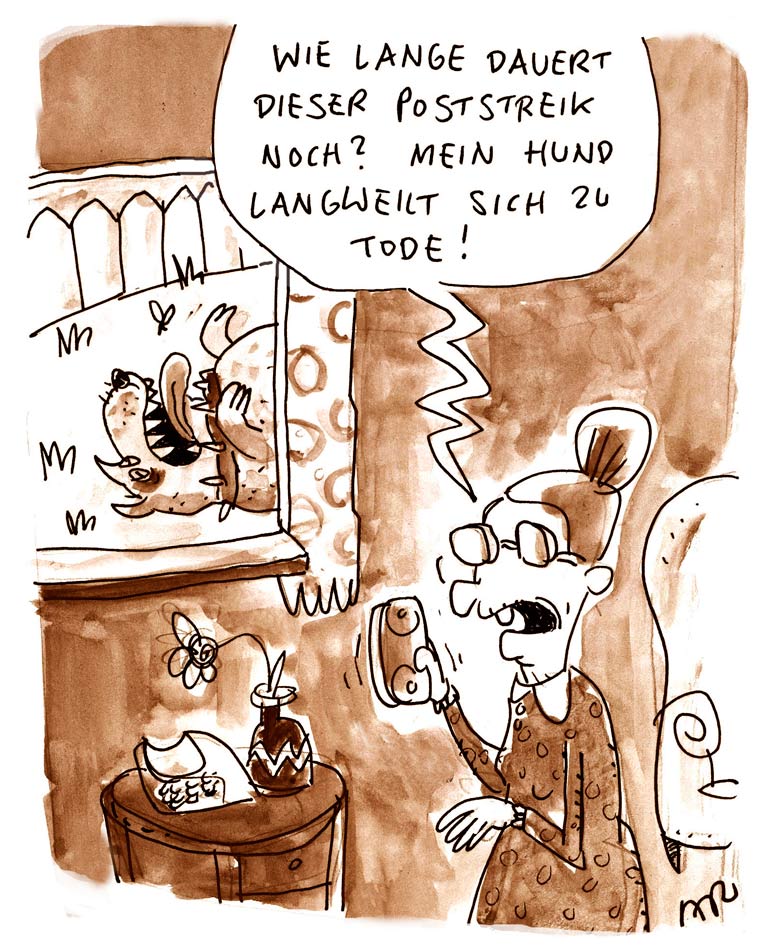 WIE LANGE DAUERT
DIESER POSTSTREIK
NOCH? MEIN HUND
LANGWEILT SICH ZU
TODE!